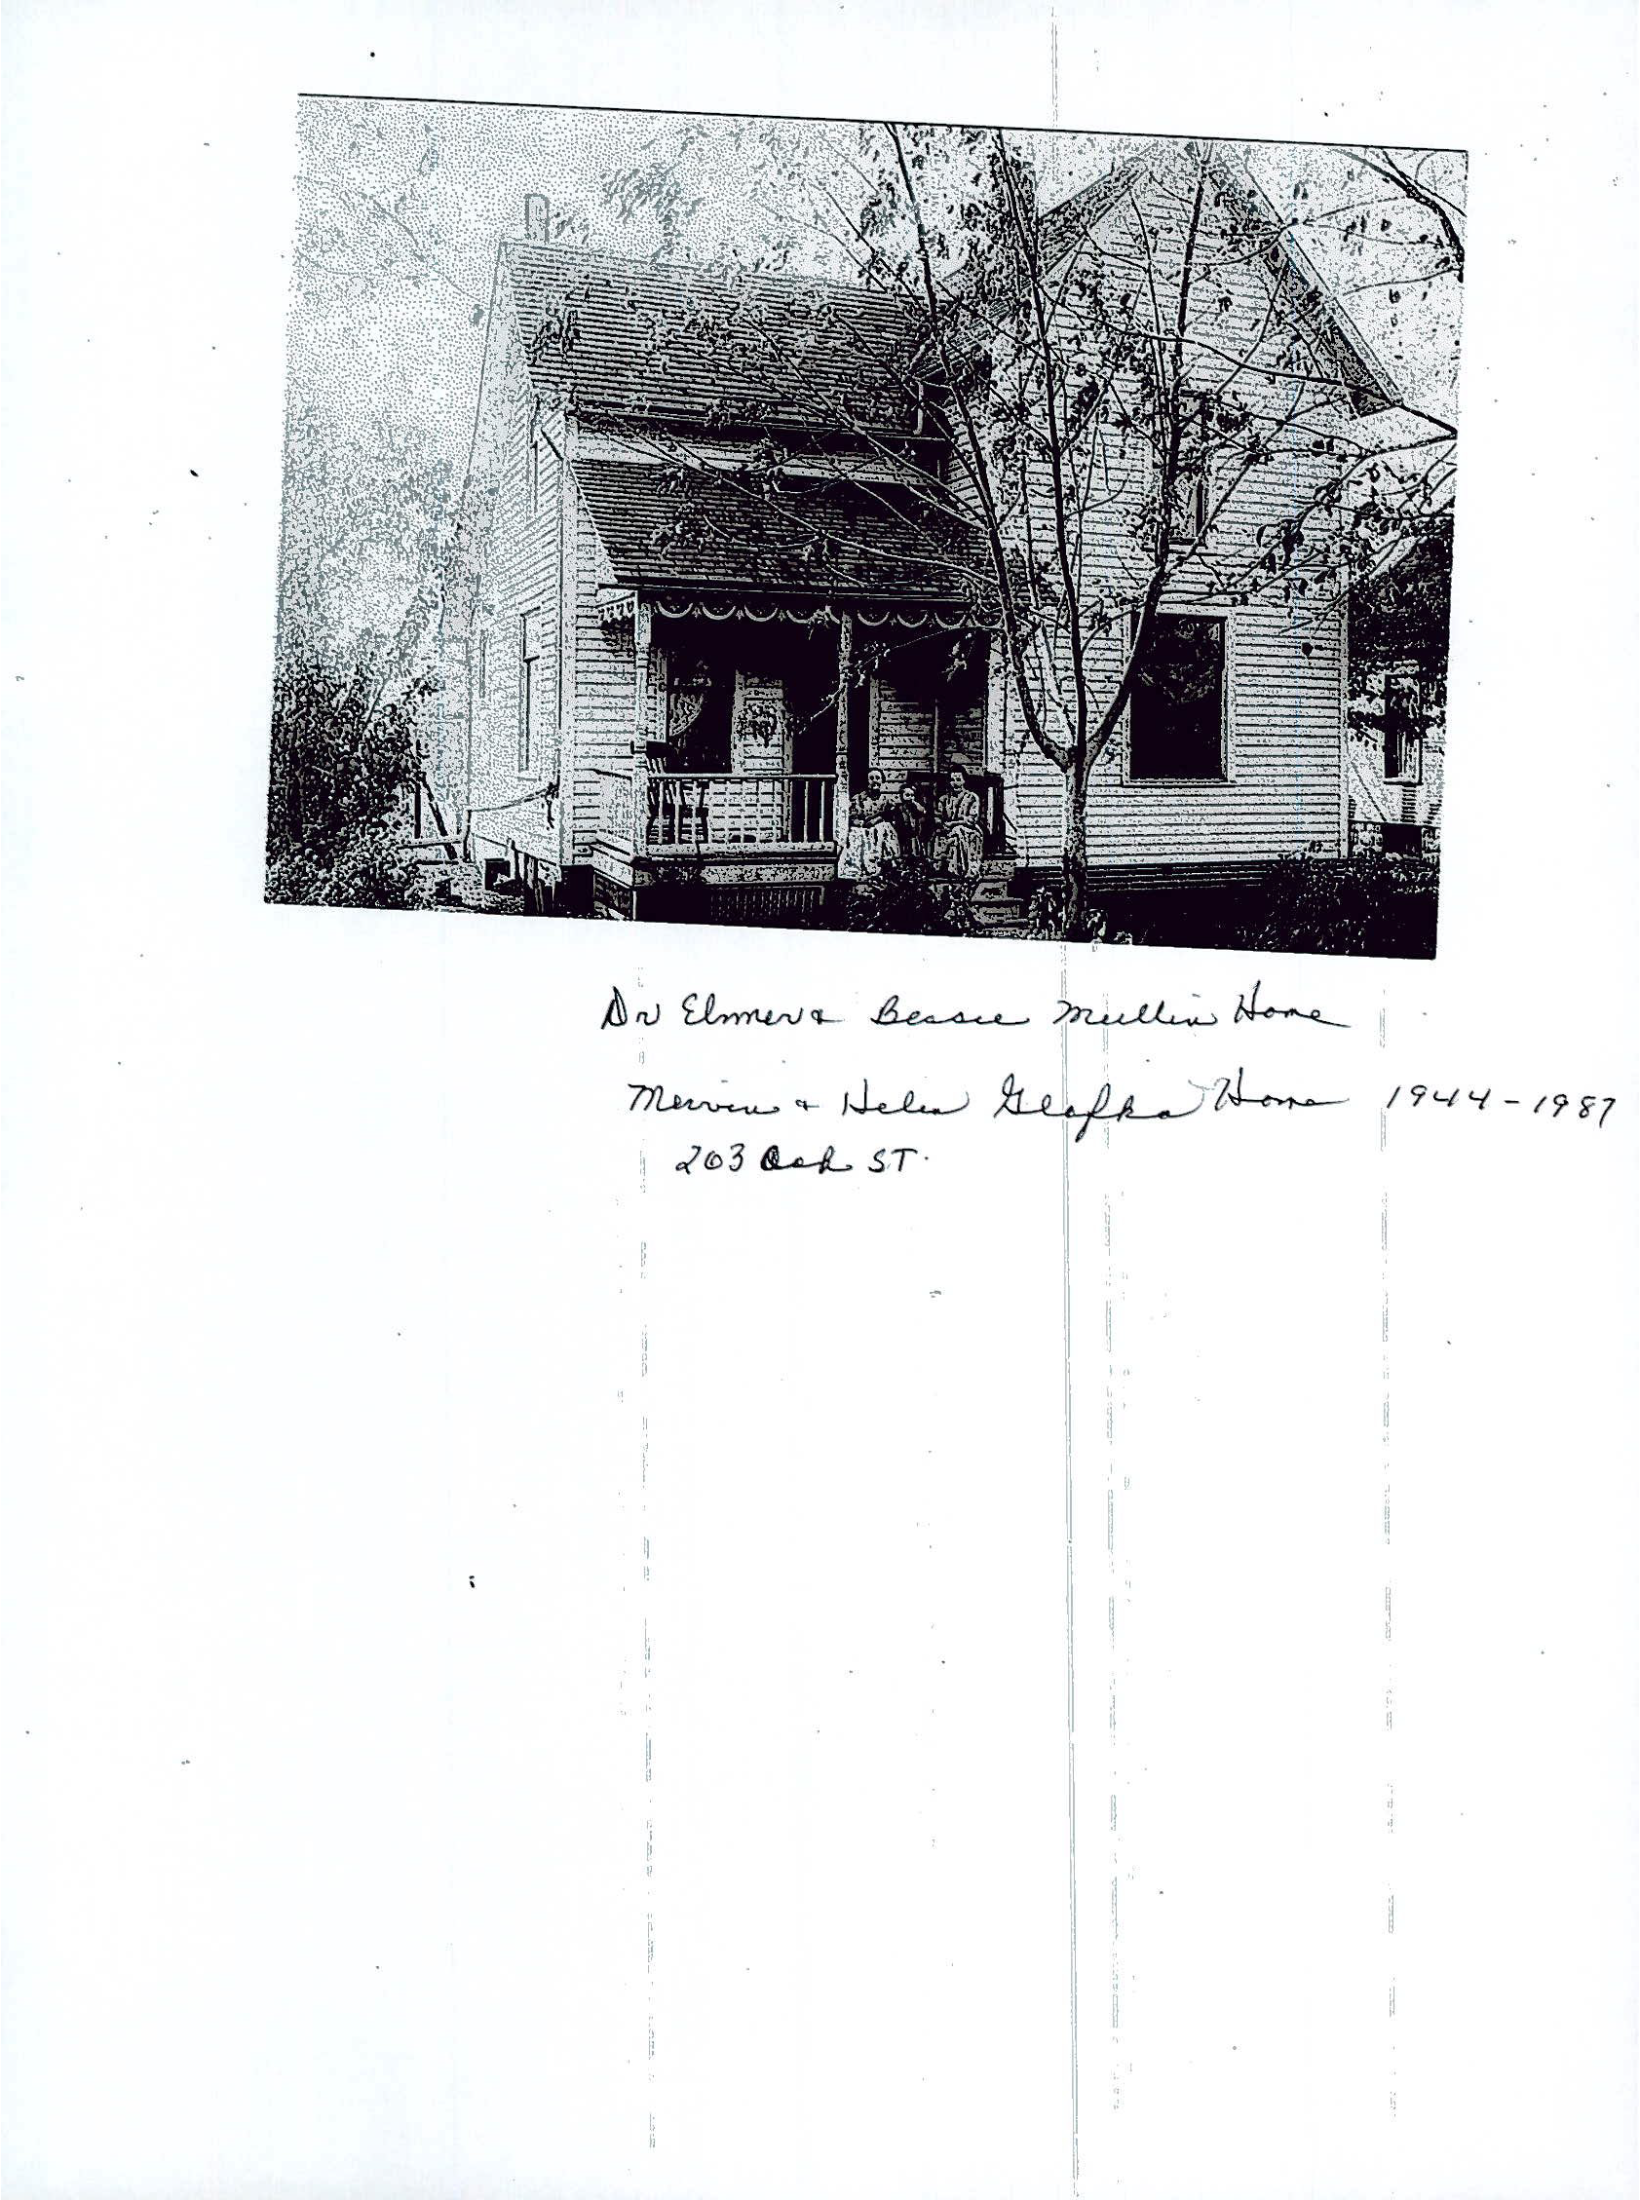 Dr Elmer & Bessie Mullin Home
Mervin & Helen Glafka Home 1944-1987
203 Oak ST.